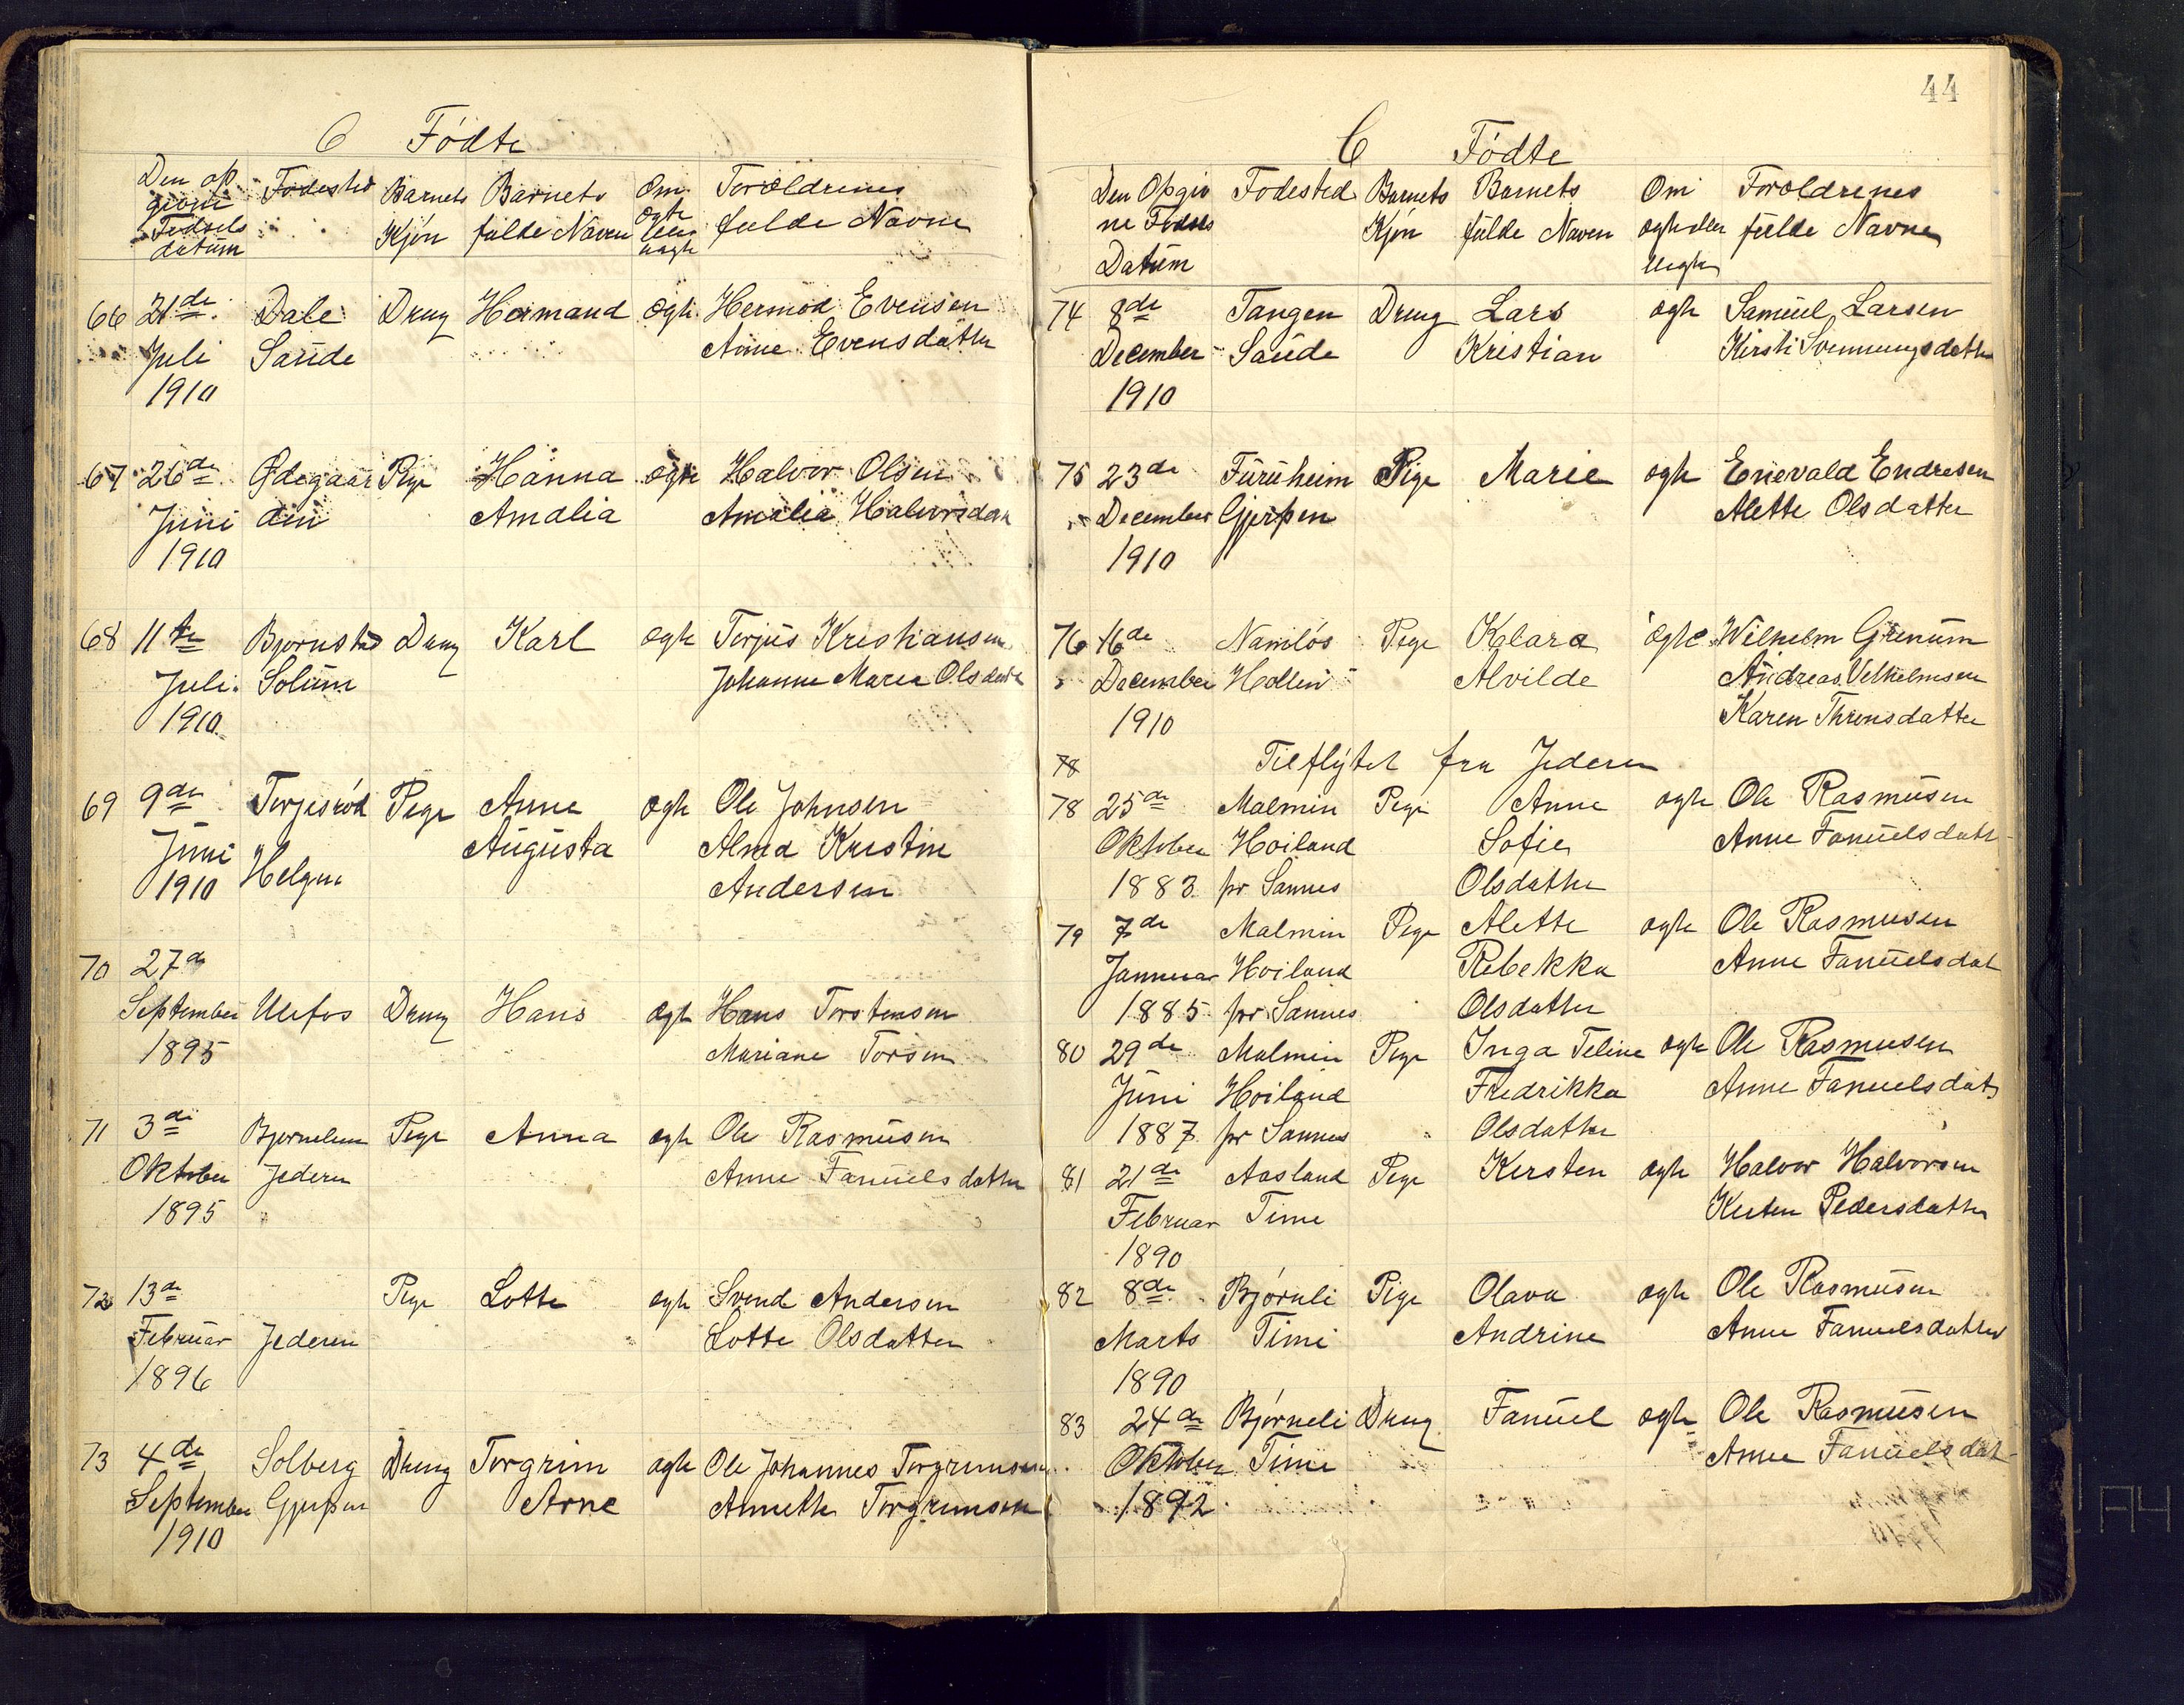 C Födte
Den op Fodested Barnets Barnets Om Foroldrenes
givne Kjön fulde Naven ogte fulde Navne
Fodsels eller
datum uegte
66 21de Dale Dreng Hermand ogte Hermod Evensen
Juli Saude Anne Evensdatter
1910
67 26de Ødegaar Pige Hanna ogte Halvor Olsen
Juni den Amalia Amalia Halvorsdatr
1910
68 11te Bjornstad Dreng Karl ogte Terjus Kristiansen
Juli Solum Johanne Maria Olsdatter
1910
69 9de Torjesröd Pige Anne ogte Ole Johnsen
Juni Helgen Augusta Alma Kristine
1910 Andersen
70 27de
September Ulefos Dreng Hans ogte Hans Torstensen
1895 Mariane Torsen
71 3de Bjornelien Pige Anna ogte Ole Rasmusen
Oktober Jederen Anne Fanuelsdatter
1895
72 13de Pige Lotte ogte Svend Andersen
Februar Jederen Lotte Olsdatter
1896
73 4de Solberg Dreng Torgrim ogte Ole Johannes Torgrimsen
September Gjerpen Arne Annette Torgrimsen
1910
44
C Födte
Den Opgiv Fodested Barnets Barnets Om Foroldrenes
ne Fodsels Kjön fulde Naven ogte eller fulde Navne
Datum uegte
74 8de Tangen Dreng Lars ogte Samuel Larsen
December Saude Kristian Kirsti Svenningsdatter
1910
75 23de Furuheim Pige Marie ogte Enevald Endresen
December Gjerpen Alette Olsdatter
1910
76 16de Namlös Pige Klara ogte Wilhelm Grenum
December Hollen Alvilde Andreas Vilhelmsen
1910 Karen Thronsdatter
78 Tilflytet fra Jederen
78 25de Malmin Pige Anne ogte Ole Rasmusen
Oktober Hoiland Sofie Anne Fanuelsdatr
1883 pr Sannes Olsdatter
79 7de Malmin Pige Alette ogte Ole Rasmusen
Januar Hoiland Rebekka Anne Fanuelsdat
1885 pr Sannes Olsdatter
80 29de Malmin Pige Inga Teline ogte Ole Rasmusen
Juni Hoiland Fredrikka Anne Fanuelsdat
1887 pr Sannes Olsdatter
81 21de Aasland Pige Kersten ogte Halvor Halvorsen
Februar Time Kersten Pedersdatter
1890
82 8de Björneli Pige Olava ogte Ole Rasmusen
Marts Time Andrine Anne Fanuelsdatter
1890
83 24de Björneli Dreng Fanuel ogte Ole Rasmusen
Oktober Time Anne Fanuelsdat
1892
A4